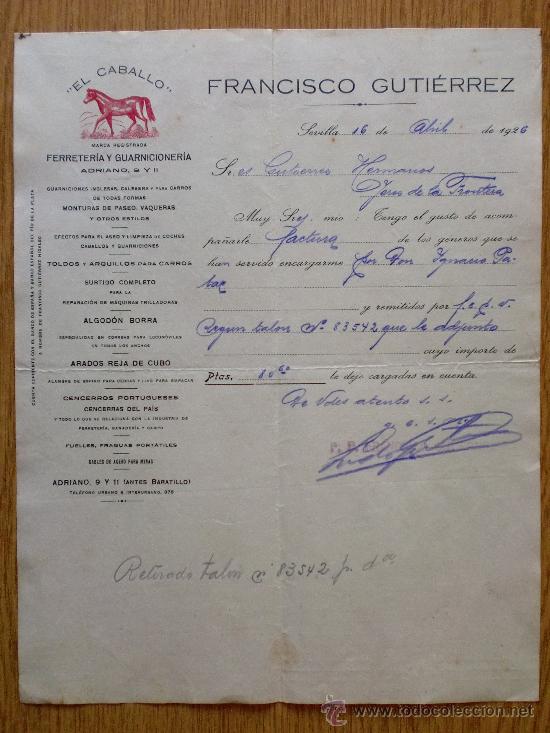 "EL CABALLO"
MARCA REGISTRADA
FERRETERÍA Y GUARNICIONERÍA
ADRIANO, 9 Y 11
GUARNICIONES INGLESAS, CALESERAS Y PARA CARROS
DE TODAS FORMAS
MONTURAS DE PASEO, VAQUERAS
Y OTROS ESTILOS
EFECTOS PARA EL ASEO Y LIMPIEZA DE COCHES
CABALLOS Y GUARNICIONES
TOLDOS Y ARQUILLOS PARA CARROS
SURTIDO COMPLETO
PARA LA
REPARACIÓN DE MÁQUINAS TRILLADORAS
ALGODÓN BORRA
ESPECIALIDAD EN CORREAS PARA LOCOMÓVILES
EN TODOS LOS ANCHOS
ARADOS REJA DE CUBO
ALAMBRE DE ESPINO PARA CERCAS Y LISO PARA EMPACAR
CENCERROS PORTUGUESES
CENCERRAS DEL PAÍS
Y TODO LO QUE SE RELACIONA CON LA INDUSTRIA DE
FERRETERÍA, GANADERÍA Y CAMPO
FUELLES, FRAGUAS PORTÁTILES
CABLES DE ACERO PARA MINAS
ADRIANO, 9 Y 11 (ANTES BARATILLO)
TELÉFONO URBANO E INTERURBANO, 376
CUENTA CORRIENTE CON EL BANCO DE ESPAÑA Y BANCO ESPAÑOL DEL RÍO DE LA PLATA
A NOMBRE DE FRANCISCO GUTIÉRREZ HIDALGO
FRANCISCO GUTIÉRREZ
Sevilla 16 de Abril de 1926
Sr.es Gutierrez Hermanos
Jerez de la Frontera
Muy Sres. mio: Tengo el gusto de acom
pañarle factura de los generos que se
han servido encargarme por Don Ignacio
y remitidos por f. c. s.
segun talon Nº 83542 que le adjunto
cuyo importe de
Ptas. 80,60 le dejo cargadas en cuenta.
De Vdes atento s. s.
P. P.
Retirado talon nº 83542 p.
www.todocoleccion.net